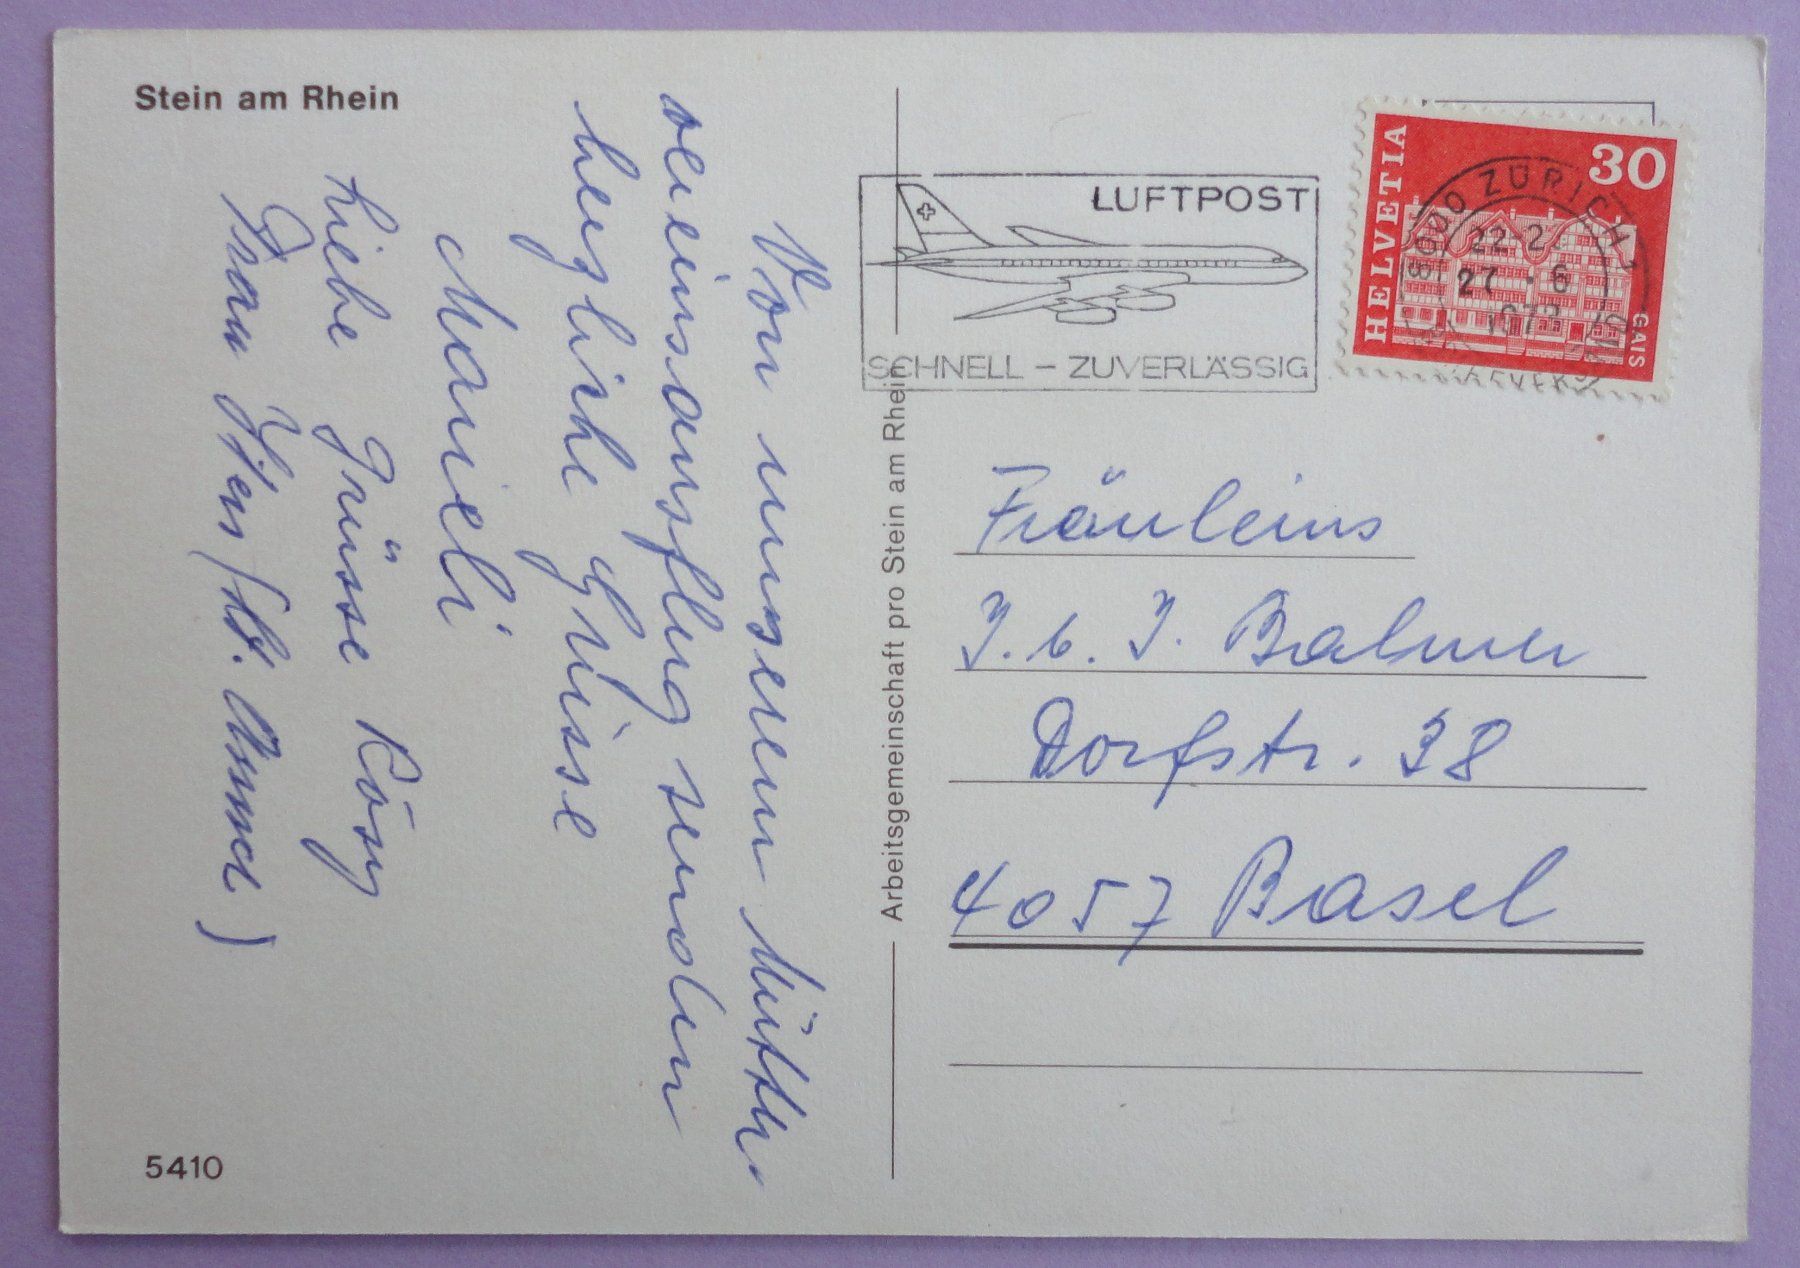 Stein am Rhein
Von unserem Mütter
vereinsausflug senden
herzliche Grüsse
Marieli
Liebe Grüsse Rösy
Frau
5410
Arbeitsgemeinschaft pro Stein am Rhein
LUFTPOST
SCHNELL – ZUVERLÄSSIG
HELVETIA
30
GAIS
8000 ZÜRICH 1
27 · 6
Fräuleins
J. b. J. Balmer
Dorfstr. 38
4057 Basel